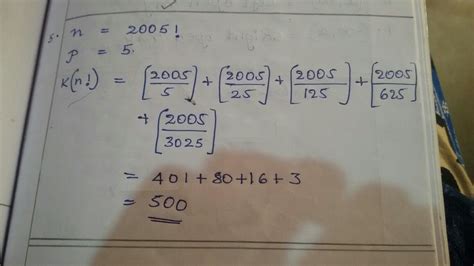 5. n = 2005!
p = 5.
K(n!) = [2005/5] + [2005/25] + [2005/125] + [2005/625]
+ [2005/3025]
= 401+80+16+3
= 500